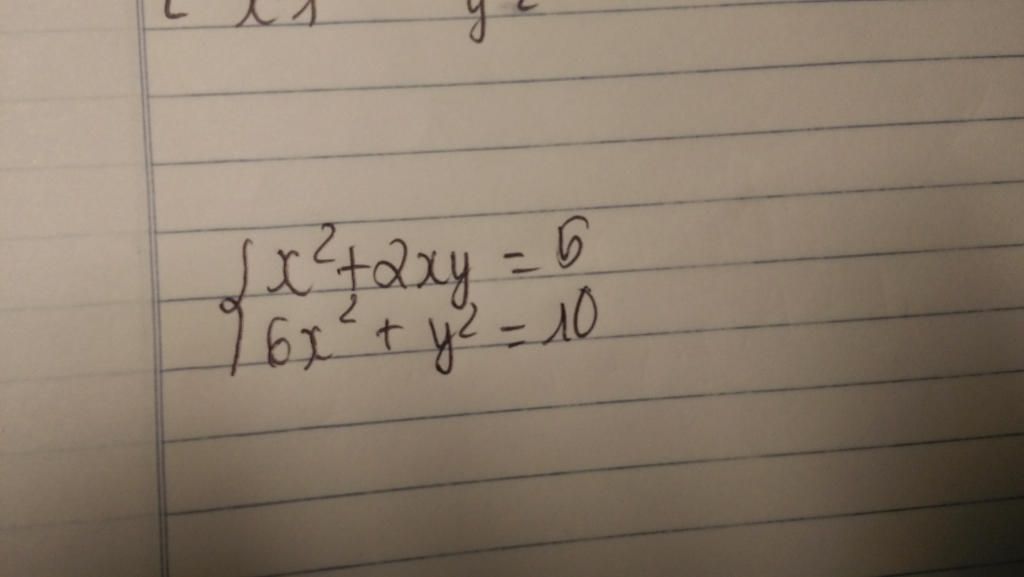 x² + 2xy = 5
6x² + y² = 10